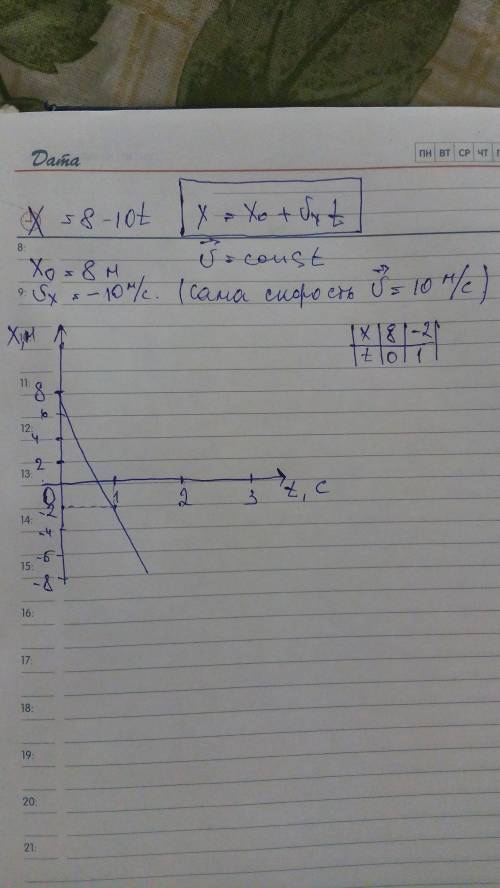 Дата
ПН ВТ СР ЧТ
X = 8 - 10t
x = x₀ + υₓ t
8:
X₀ = 8 м
υ⃗ = const
9:
υₓ = -10 м/с. (сама скорость υ⃗ = 10 м/с)
X, м
X 8 -2
t 0 1
11:
8
6
12:
4
2
13:
0
1
2
3
t, с
-2
14:
-4
-6
15:
-8
16:
17:
18:
19:
20:
21: